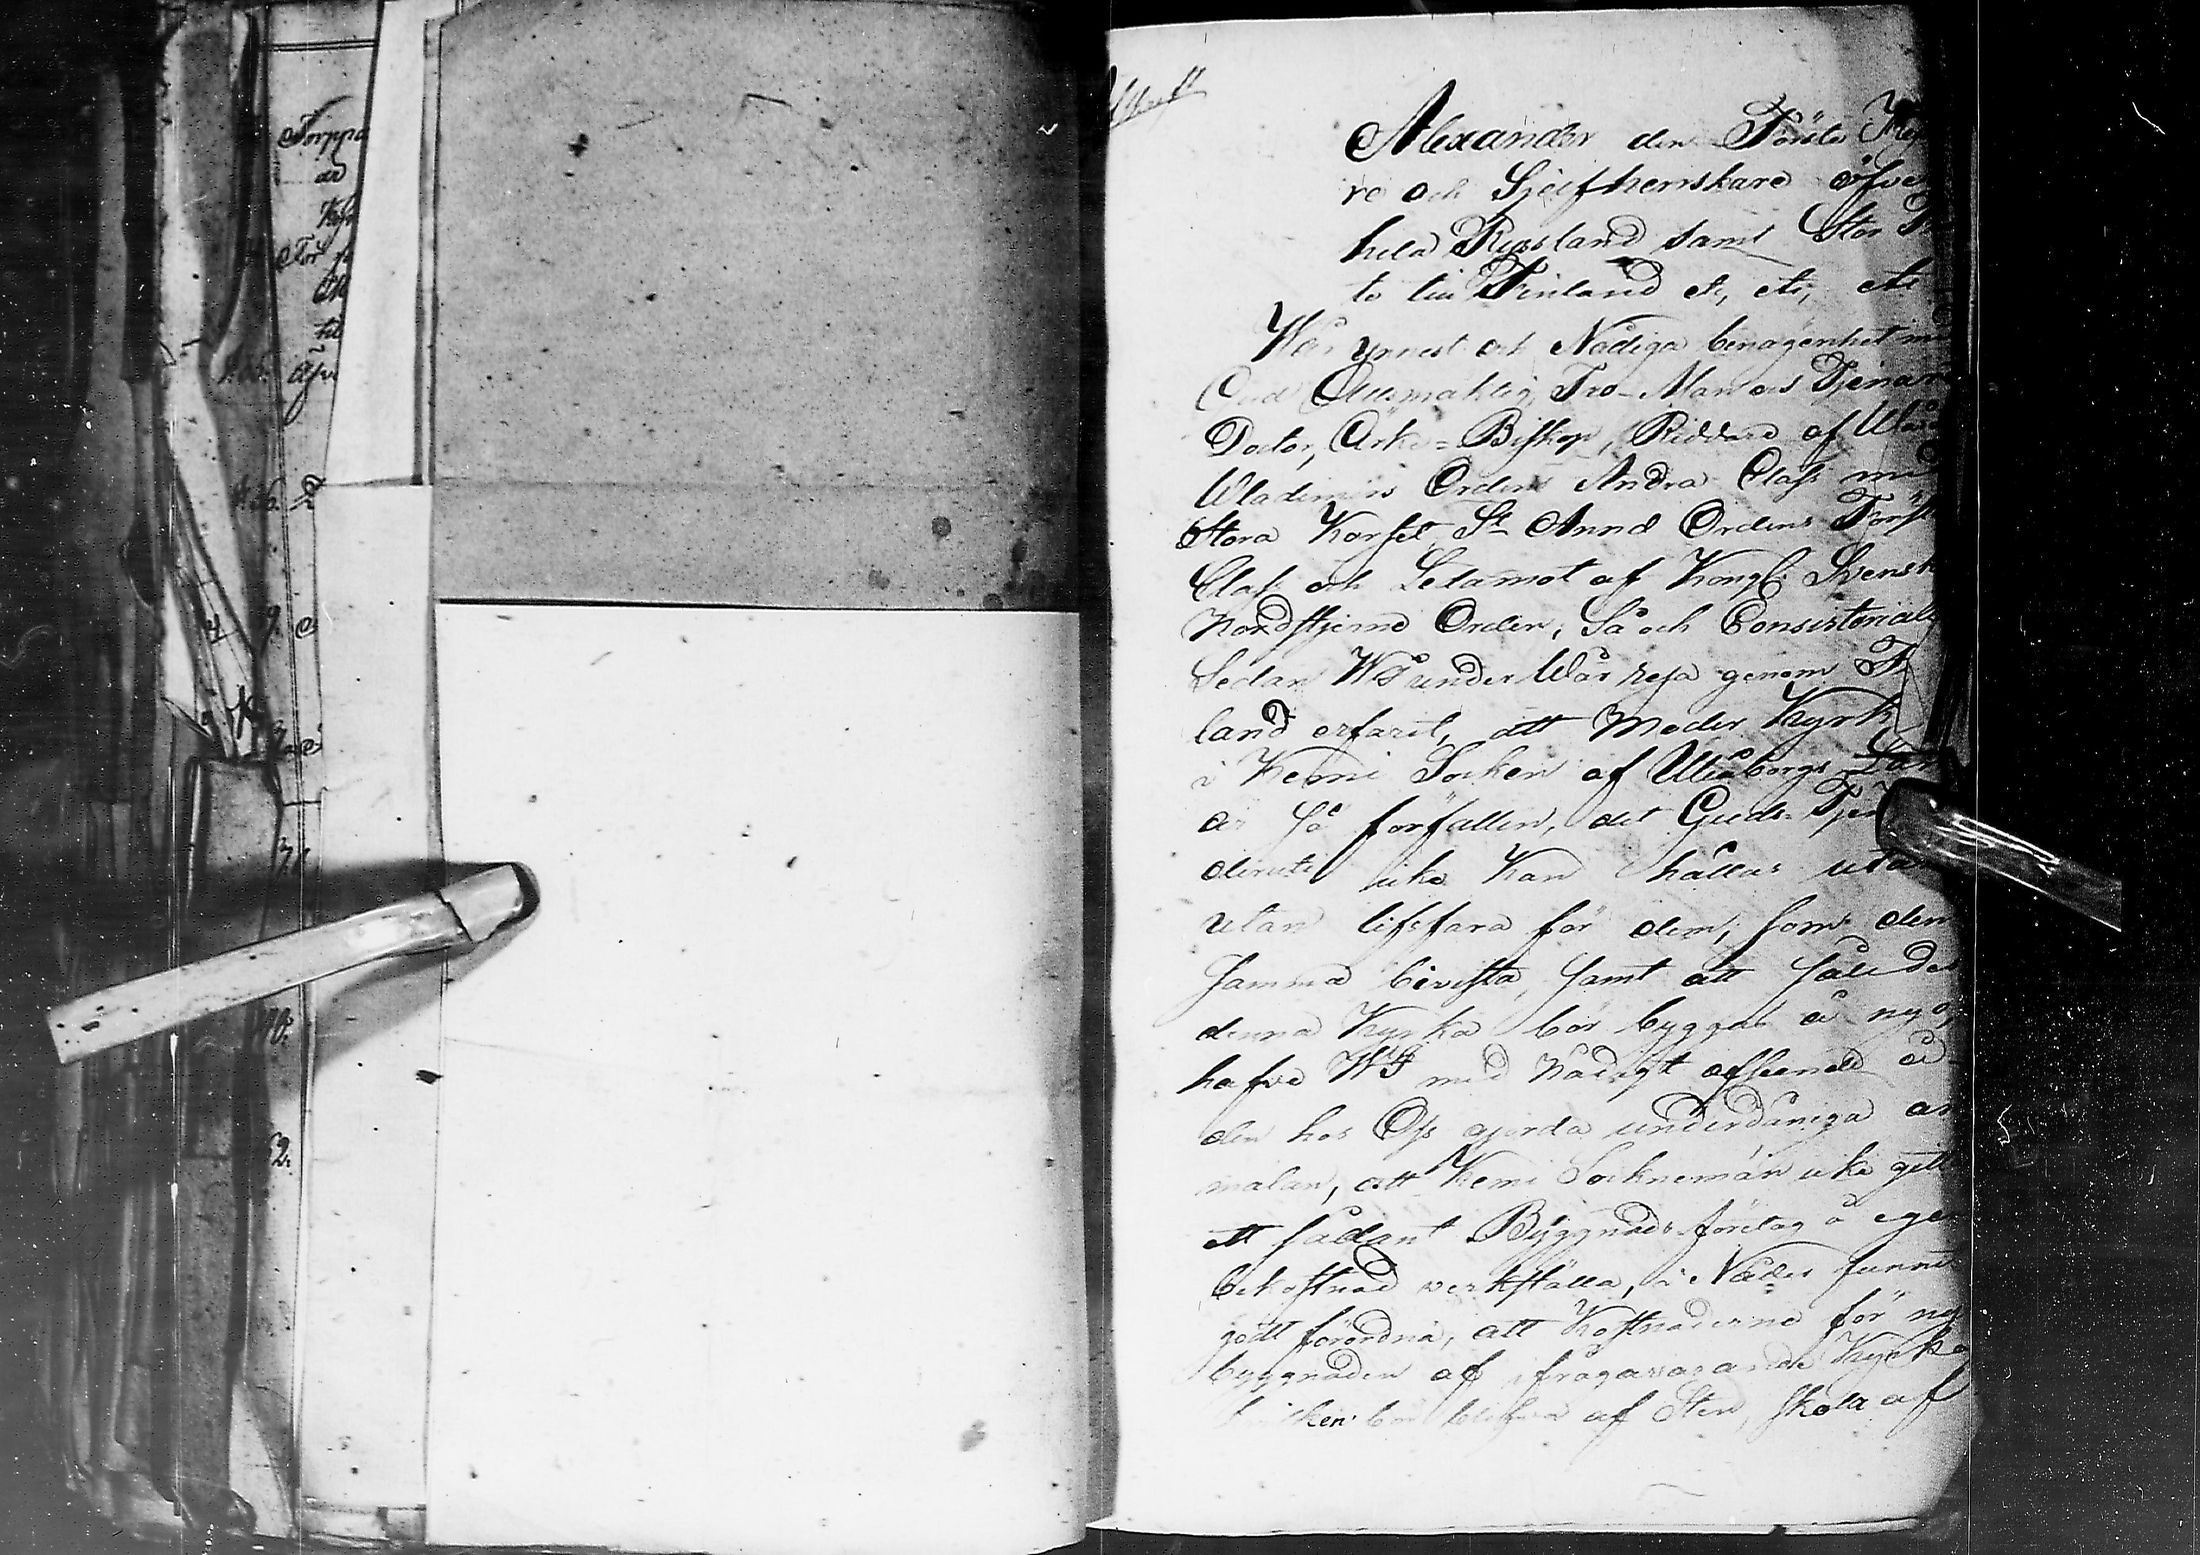 Torppa
Afskrift
Alexander den Förste Kej
re och Sjelfherrskare öfver
hela Ryssland samt Stor F
te till Finland etc, etc, etc
Vår ynnest och Nådiga benägenhet med
Gud Allsmäktig, Tro-Man och Tjenare
Doctor, Ärke-Biskop, Riddare af
Wladimirs Orden Andra Class med
Stora Korset, St Annæ Ordens Först
Class och Ledamot af Kongl. Svensk
Nordstjerne Orden, Så och Consistorial
Sedan Wi under Wår resa genom F
land erfarit, att Moder Kyrk
i Kemi Socken af Uleåborgs Län
är så förfallen, det Guds-Tjen
derute icke kan hållas utan
utan lifsfara för dem, som den
samma bevista, samt att således
denna Kyrka bör byggas å nyo,
hafve Wi med Nådigt afseende å
den hos Oss gjorda underdåniga an
mälan, att Kemi Socknemän icke gitta
ett sådant Byggnads-företag å egen
bekostnad verkställa, i Nåder funnit
godt förordna, att Kostnaderne för ny
byggnaden af ifrågavarande Kyrka
hvilken bör blifva af Sten, skola af